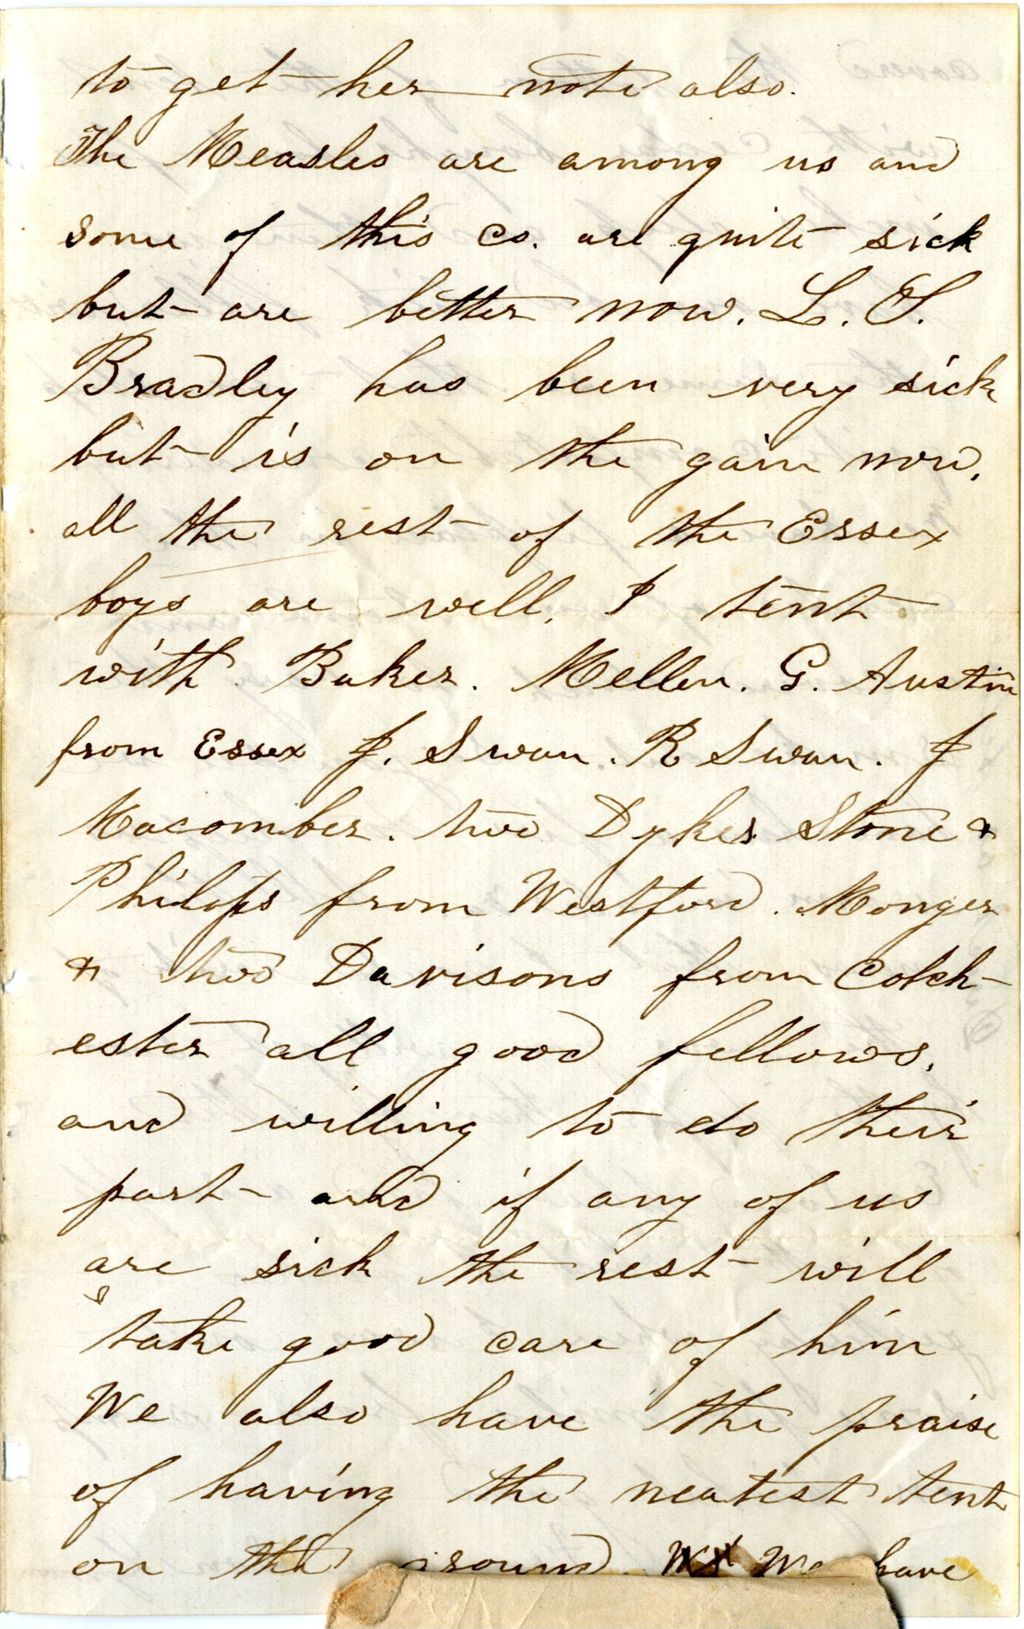 to get her note also.
The Measles are among us and
some of this co. are quite sick
but are better now. L. S.
Bradley has been very sick
but is on the gain now.
all the rest of the Essex
boys are well. I tent
with Baker. Mellen. G. Austin
from Essex J. Swan. R Swan. J
Macomber. two Dykes Stone &
Philips from Westford. Monger
& two Davisons from Colch-
ester all good fellows.
and willing to do their
part and if any of us
are sick the rest will
take good care of him
We also have the praise
of having the neatest tent
on the ground. We have